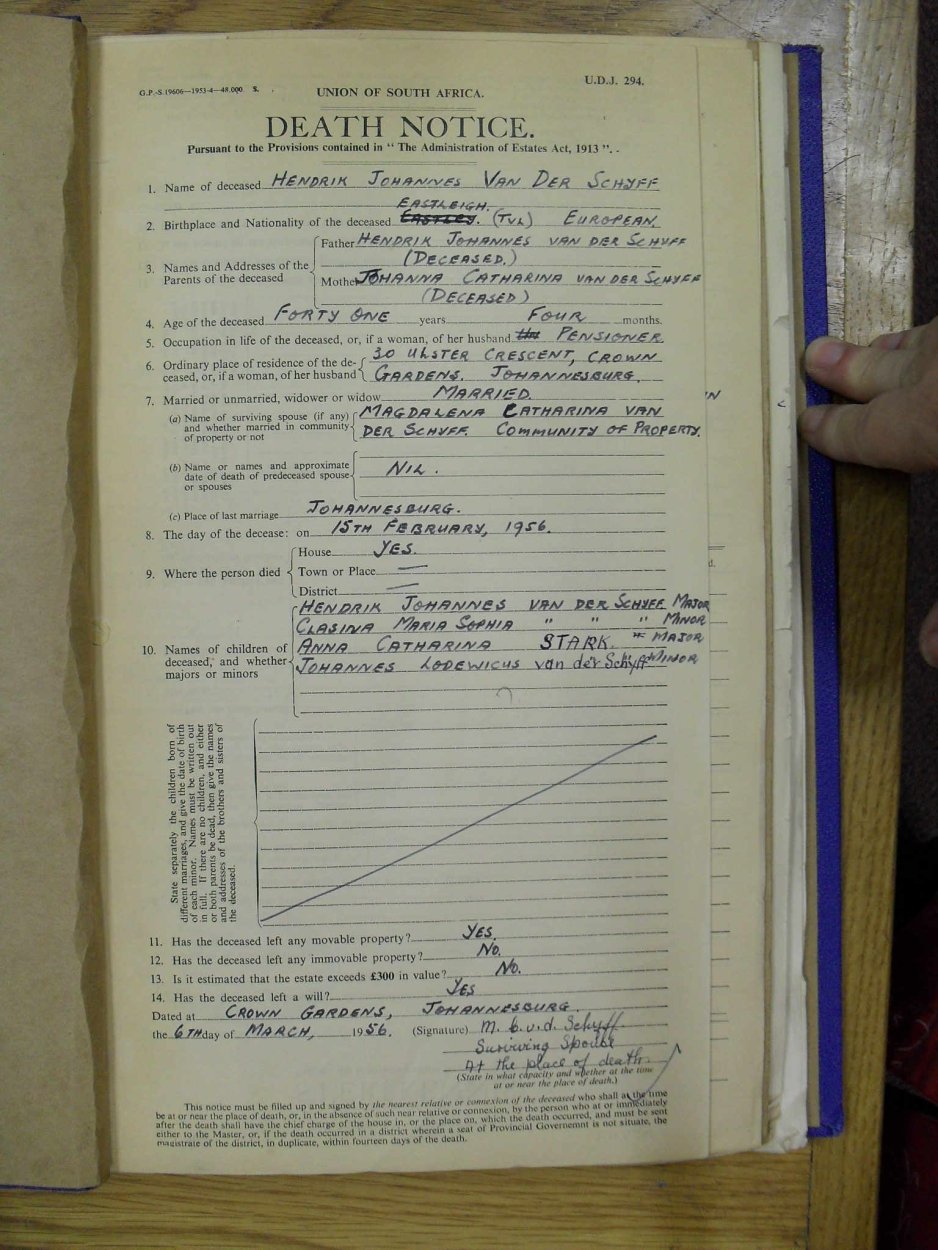 G.P.-S.19606—1953-4—48,000. S.
U.D.J. 294.
UNION OF SOUTH AFRICA.
DEATH NOTICE.
Pursuant to the Provisions contained in "The Administration of Estates Act, 1913".
1. Name of deceased HENDRIK JOHANNES VAN DER SCHYFF
EASTLEIGH.
2. Birthplace and Nationality of the deceased EASTLEY. (TVL) EUROPEAN.
3. Names and Addresses of the Parents of the deceased
Father HENDRIK JOHANNES VAN DER SCHYFF
(DECEASED.)
Mother JOHANNA CATHARINA VAN DER SCHYFF
(DECEASED)
4. Age of the deceased FORTY ONE years FOUR months.
5. Occupation in life of the deceased, or, if a woman, of her husband PENSIONER.
6. Ordinary place of residence of the de- 30 ULSTER CRESCENT, CROWN
ceased, or, if a woman, of her husband GARDENS. JOHANNESBURG.
7. Married or unmarried, widower or widow MARRIED.
(a) Name of surviving spouse (if any) MAGDALENA CATHARINA VAN
and whether married in community DER SCHYFF. COMMUNITY OF PROPERTY.
of property or not
(b) Name or names and approximate
date of death of predeceased spouse NIL.
or spouses
(c) Place of last marriage JOHANNESBURG.
8. The day of the decease: on 15TH FEBRUARY, 1956.
9. Where the person died
House YES.
Town or Place —
District —
10. Names of children of deceased, and whether majors or minors
HENDRIK JOHANNES VAN DER SCHYFF MAJOR
CLASINA MARIA SOPHIA " " " MINOR
ANNA CATHARINA STARK. MAJOR
JOHANNES LODEWICUS van der Schyff MINOR
State separately the children born of
different marriages, and give the date of birth
of each minor. Names must be written out
in full. If there are no children, and either
or both parents be dead, then give the names
and addresses of the brothers and sisters of
the deceased.
11. Has the deceased left any movable property? YES.
12. Has the deceased left any immovable property? NO.
13. Is it estimated that the estate exceeds £300 in value? NO.
14. Has the deceased left a will? YES
Dated at CROWN GARDENS, JOHANNESBURG.
the 6TH day of MARCH, 1956. (Signature) M. C. v.d. Schyff
Surviving Spouse
At the place of death.
(State in what capacity and whether at the time
at or near the place of death.)
This notice must be filled up and signed by the nearest relative or connexion of the deceased who shall at the time
be at or near the place of death, or, in the absence of such near relative or connexion, by the person who at or immediately
after the death shall have the chief charge of the house in, or the place on, which the death occurred, and must be sent
either to the Master, or, if the death occurred in a district wherein a seat of Provincial Governemnt is not situate, the
magistrate of the district, in duplicate, within fourteen days of the death.